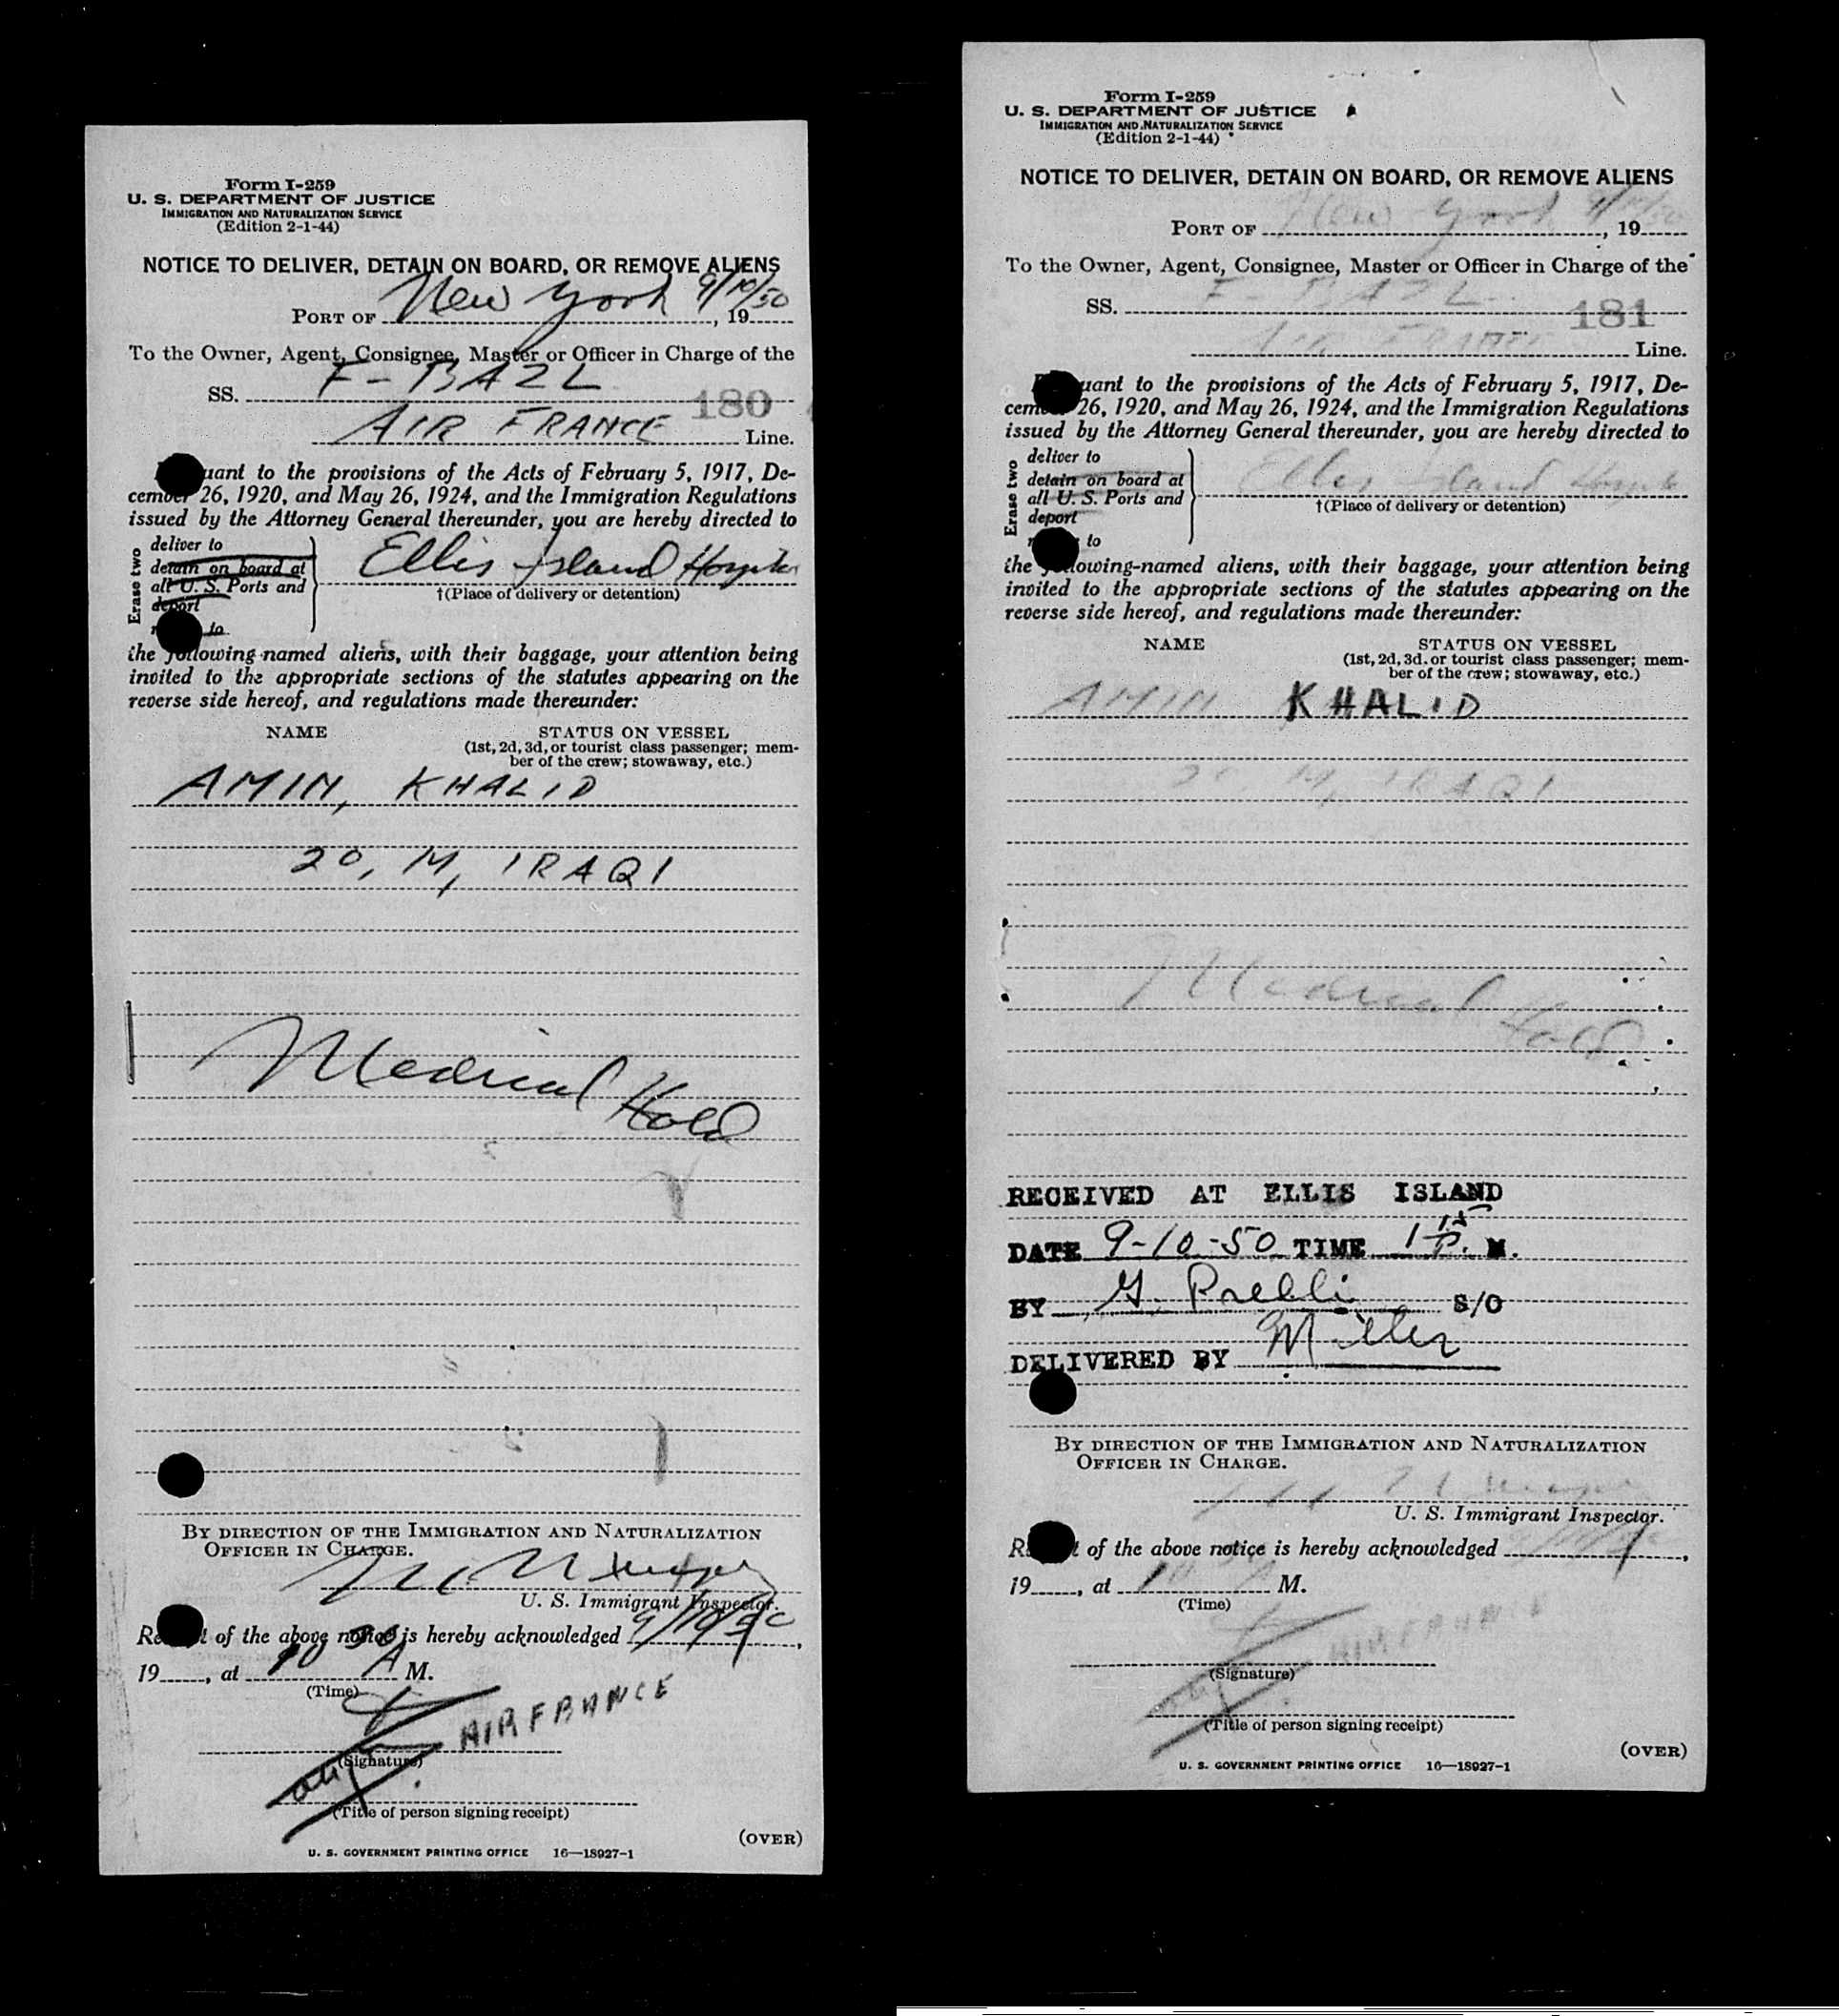 Form I-259
U. S. DEPARTMENT OF JUSTICE
IMMIGRATION AND NATURALIZATION SERVICE
(Edition 2-1-44)
NOTICE TO DELIVER, DETAIN ON BOARD, OR REMOVE ALIENS
PORT OF New York 9/10/50, 19
To the Owner, Agent, Consignee, Master or Officer in Charge of the
SS. F-BAZL
180
AIR FRANCE Line.
uant to the provisions of the Acts of February 5, 1917, De-
cember 26, 1920, and May 26, 1924, and the Immigration Regulations
issued by the Attorney General thereunder, you are hereby directed to
Erase two
deliver to
detain on board at
all U. S. Ports and
deport
to
Ellis Island Hospital
†(Place of delivery or detention)
the following-named aliens, with their baggage, your attention being
invited to the appropriate sections of the statutes appearing on the
reverse side hereof, and regulations made thereunder:
NAME STATUS ON VESSEL
(1st, 2d, 3d, or tourist class passenger; mem-
ber of the crew; stowaway, etc.)
AMIN, KHALID
20, M, IRAQI
Medical Hold
BY DIRECTION OF THE IMMIGRATION AND NATURALIZATION
OFFICER IN CHARGE.
U. S. Immigrant Inspector.
Receipt of the above notice is hereby acknowledged 9/10/50,
19, at 10 30 A M.
(Time)
AIR FRANCE
(Signature)
(Title of person signing receipt)
(OVER)
U. S. GOVERNMENT PRINTING OFFICE 16—18927-1
Form I-259
U. S. DEPARTMENT OF JUSTICE
IMMIGRATION AND NATURALIZATION SERVICE
(Edition 2-1-44)
NOTICE TO DELIVER, DETAIN ON BOARD, OR REMOVE ALIENS
PORT OF New York 9/10/50, 19
To the Owner, Agent, Consignee, Master or Officer in Charge of the
SS. F-BAZL
181
AIR FRANCE Line.
uant to the provisions of the Acts of February 5, 1917, De-
cember 26, 1920, and May 26, 1924, and the Immigration Regulations
issued by the Attorney General thereunder, you are hereby directed to
Erase two
deliver to
detain on board at
all U. S. Ports and
deport
to
Ellis Island Hospital
†(Place of delivery or detention)
the following-named aliens, with their baggage, your attention being
invited to the appropriate sections of the statutes appearing on the
reverse side hereof, and regulations made thereunder:
NAME STATUS ON VESSEL
(1st, 2d, 3d, or tourist class passenger; mem-
ber of the crew; stowaway, etc.)
AMIN KHALID
20, M, IRAQI
Medical Hold
RECEIVED AT ELLIS ISLAND
DATE 9-10-50 TIME 1 15 P. M.
BY G. S/O
DELIVERED BY Miller
BY DIRECTION OF THE IMMIGRATION AND NATURALIZATION
OFFICER IN CHARGE.
U. S. Immigrant Inspector.
Receipt of the above notice is hereby acknowledged
19, at 10 30 A M.
(Time)
AIR FRANCE
(Signature)
(Title of person signing receipt)
(OVER)
U. S. GOVERNMENT PRINTING OFFICE 16—18927-1